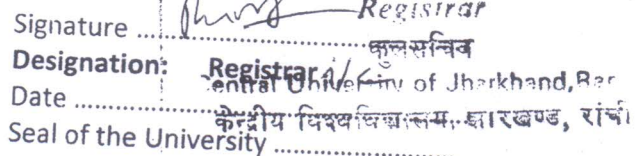 Signature ............ Registrar
कुलसचिव
Designation: Registrar i/c
Central University of Jharkhand, Ran
Date ............
केन्द्रीय विश्वविद्यालय, झारखण्ड, रांची
Seal of the University ............